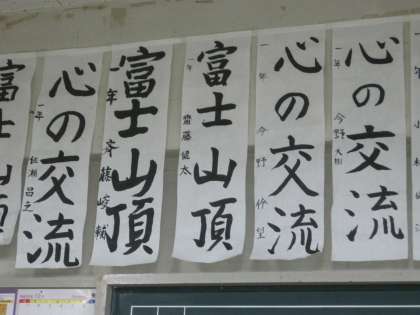 心の交流
一年 今野 大樹
心の交流
一年 今野 伶望
富士山頂
一年 齋藤 健太
富士山頂
一年 斉藤 崚輔
心の交流
一年 紅瀬 昌之
富士山頂